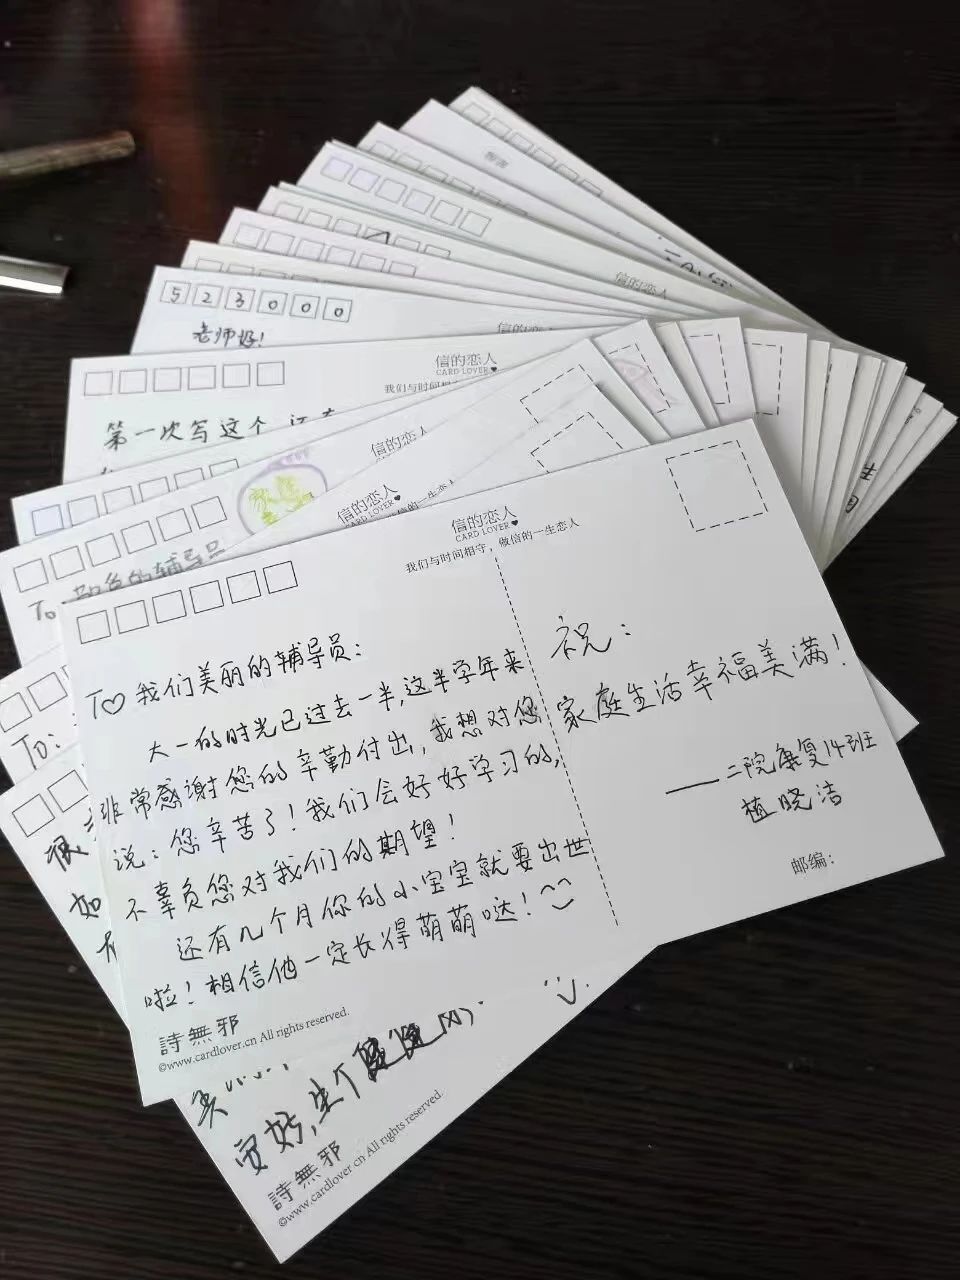 信的恋人
CARD LOVER
我们与时间相守，做信的一生恋人
To 我们美丽的辅导员：
大一的时光已过去一半，这半学年来
非常感谢您的辛勤付出，我想对您
说：您辛苦了！我们会好好学习的，
不辜负您对我们的期望！
还有几个月你的小宝宝就要出世
啦！相信他一定长得萌萌哒！
祝：
家庭生活幸福美满！
——二院康复14班
植晓洁
邮编：
詩無邪
©www.cardlover.cn All rights reserved.
523000
老师好！
信的恋人
信的恋人
CARD LOVER
我们与时间相
第一次写这个
信的恋人
CARD LOVER
信的恋人
CARD LOVER
的一生恋人
To
的辅导员
To:
很
如
安好，生个
詩無邪
©www.cardlover.cn All rights reserved.